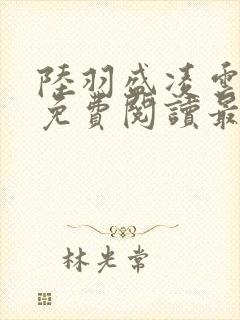 陸羽盛凌雲
免費閱讀最
林光常